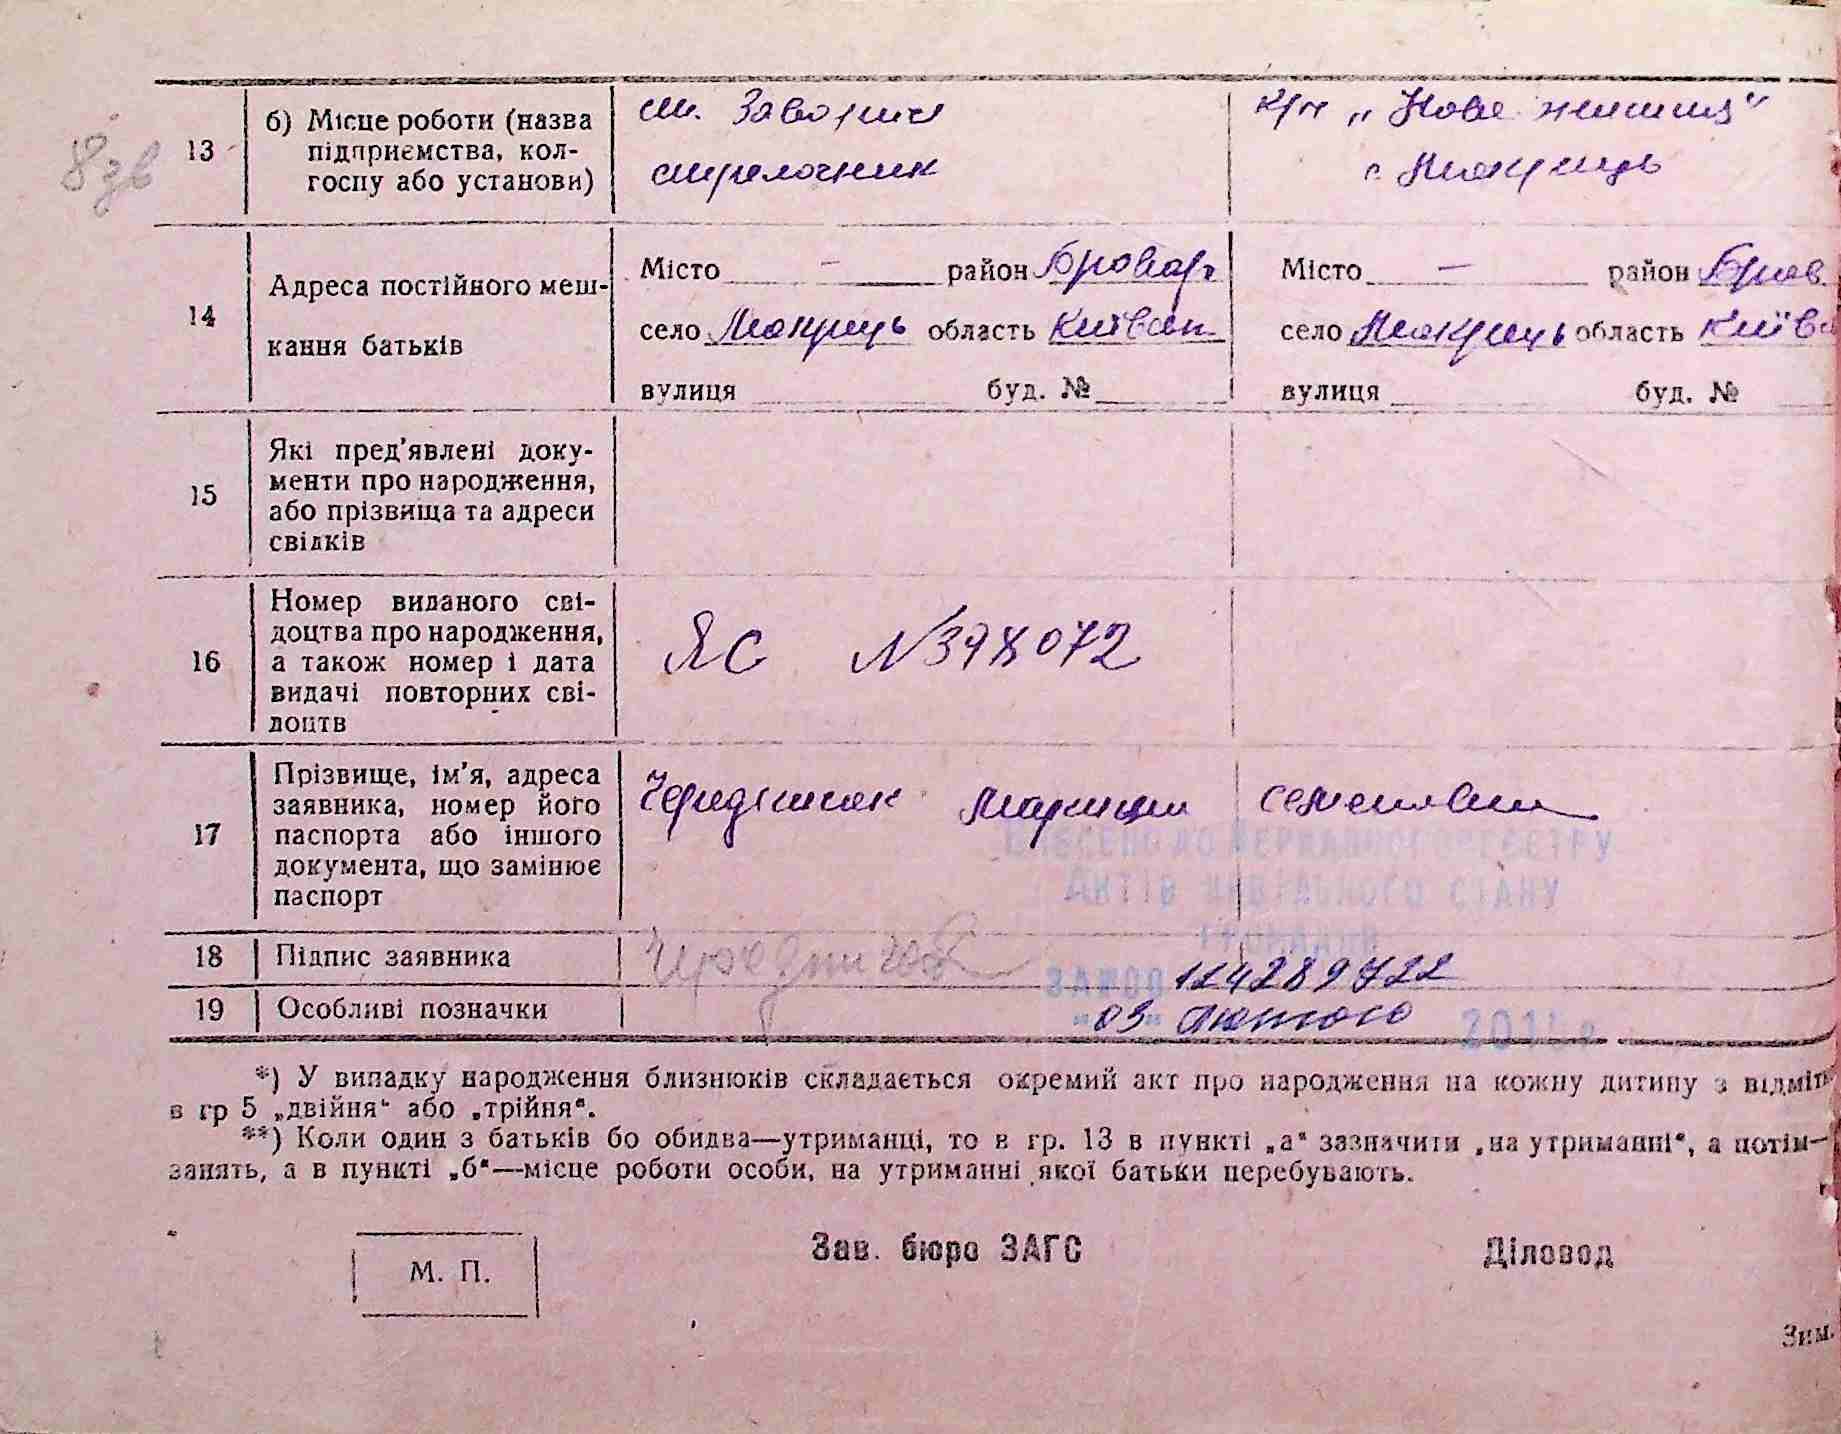 8 зв
13
б) Місце роботи (назва
підприємства, кол-
госпу або установи)
ст. Заворичі
стрелочник
к/г „Нове життя“
с. Мокрець
14
Адреса постійного меш-
кання батьків
Місто – район Бровар
село Мокрець область Київськ
вулиця буд. №
Місто – район Бров.
село Мокрець область Київс
вулиця буд. №
15
Які пред'явлені доку-
менти про народження,
або прізвища та адреси
свідків
16
Номер виданого сві-
доцтва про народження,
а також номер і дата
видачі повторних сві-
доцтв
ЯС №398072
17
Прізвище, ім'я, адреса
заявника, номер його
паспорта або іншого
документа, що замінює
паспорт
Семенівни
ВНЕСЕНО ДО ДЕРЖАВНОГО РЕЄСТРУ
АКТІВ ЦИВІЛЬНОГО СТАНУ
ГРОМАДЯН
18
Підпис заявника
ЗА №00 124289722
19
Особливі позначки
"03" лютого 201 р
*) У випадку народження близнюків складається окремий акт про народження на кожну дитину з відміт-
в гр 5 „двійня“ або „трійня“.
**) Коли один з батьків бо обидва—утриманці, то в гр. 13 в пункті „а“ зазначити „на утриманні“, а потім—
занять, а в пункті „б“—місце роботи особи, на утриманні якої батьки перебувають.
М. П.
Зав. бюро ЗАГС
Діловод
Зим.